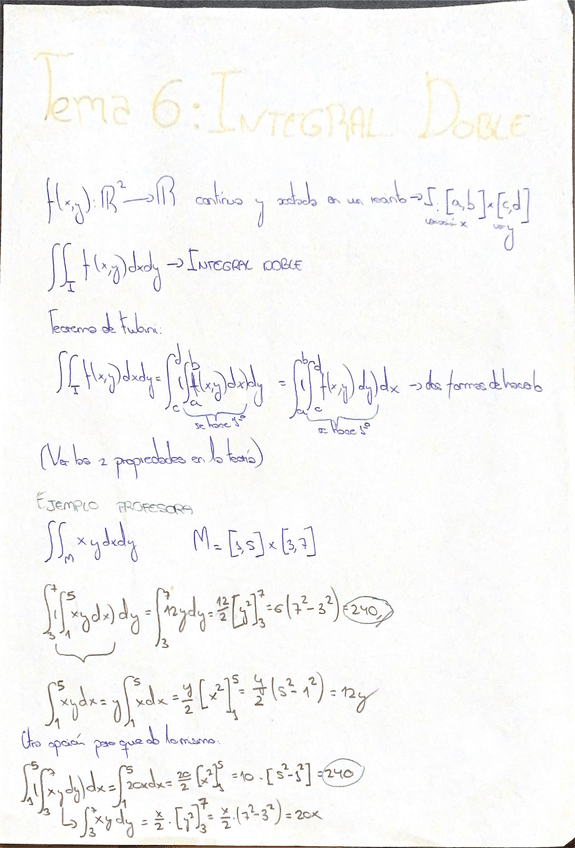 Tema 6: INTEGRAL DOBLE
f(x,y): ℝ² → ℝ continua y acotada en un recinto → I: [a,b]×[c,d]
variación x var y
∬_I f(x,y)dxdy → INTEGRAL DOBLE
Teorema de Fubini:
∬_I f(x,y)dxdy = ∫_c^d (∫_a^b f(x,y)dx)dy = ∫_a^b (∫_c^d f(x,y)dy)dx → dos formas de hacerlo
se hace 1º se hace 1º
(Ver las 2 propiedades en la teoría)
EJEMPLO PROFESORA
∬_M xydxdy M = [1,5] × [3,7]
∫_3^7 (∫_1^5 xydx) dy = ∫_3^7 12ydy = 12/2 [y²]_3^7 = 6(7²-3²) = 240
∫_1^5 xydx = y∫_1^5 xdx = y/2 [x²]_1^5 = y/2 (5²-1²) = 12y
Otra opción para que da lo mismo:
∫_1^5 (∫_3^7 xydy)dx = ∫_1^5 20xdx = 20/2 [x²]_1^5 = 10 · [5²-1²] = 240
↳ ∫_3^7 xydy = x/2 · [y²]_3^7 = x/2 · (7²-3²) = 20x